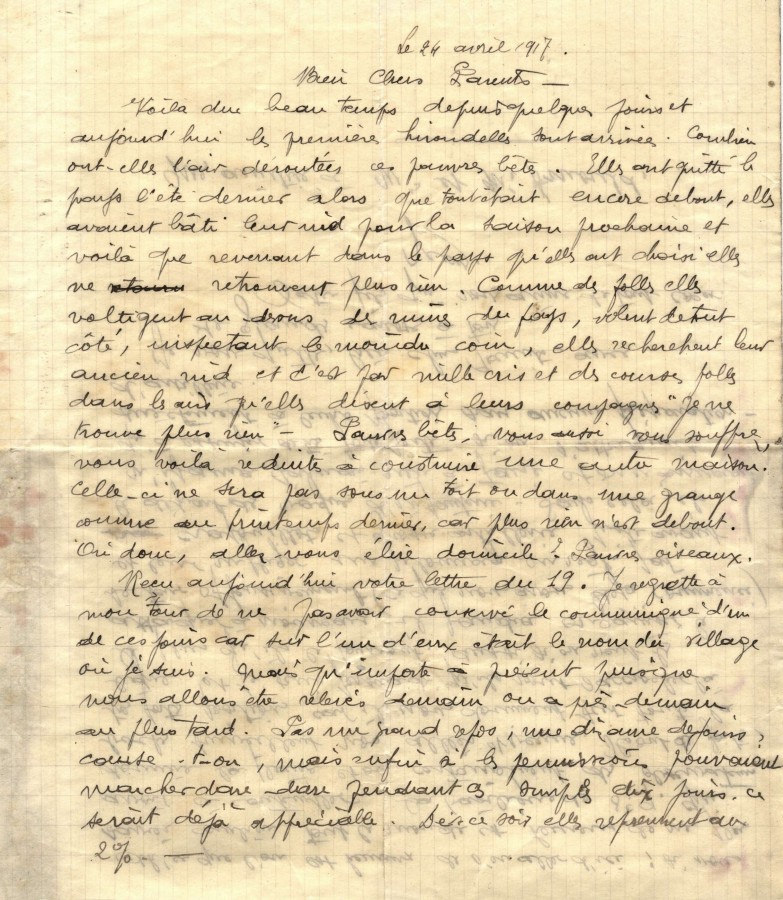 Le 24 avril 1917.
Bien Chers Parents —
Voilà du beau temps depuis quelques jours et
aujourd'hui les premières hirondelles sont arrivées. Combien
ont-elles l'air déroutées ces pauvres bêtes. Elles ont quitté le
pays l'été dernier alors que tout était encore debout, elles
avaient bâti leur nid pour la saison prochaine et
voilà que revenant dans le pays qu'elles ont choisi elles
ne retrouvent plus rien. Comme des folles elles
voltigent au dessus des ruines du pays, volent de tout
côté, inspectant le moindre coin, elles recherchent leur
ancien nid et c'est par mille cris et des courses folles
dans les airs qu'elles disent à leurs compagnes "Je ne
trouve plus rien" — Pauvres bêtes, vous aussi vous souffrez,
vous voilà réduites à construire une autre maison.
Celle-ci ne sera pas sous un toit ou dans une grange
comme au printemps dernier, car plus rien n'est debout.
Où donc, allez-vous élire domicile? Pauvres oiseaux.
Reçu aujourd'hui votre lettre du 19. Je regrette à
mon tour de ne pas avoir conservé le communiqué d'un
de ces jours car sur l'un d'eux était le nom du village
où je suis. Mais qu'importe à présent puisque
nous allons être relevés demain ou après-demain
au plus tard. Pas un grand repos; une dizaine de jours,
cause-t-on, mais enfin si les permissions pouvaient
marcher dare-dare pendant ces simples dix jours. ce
serait déjà appréciable. Dès ce soir elles reprennent au
2% —